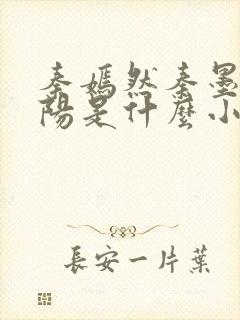 秦嫣然秦墨
陽是什麼小
長安一片葉